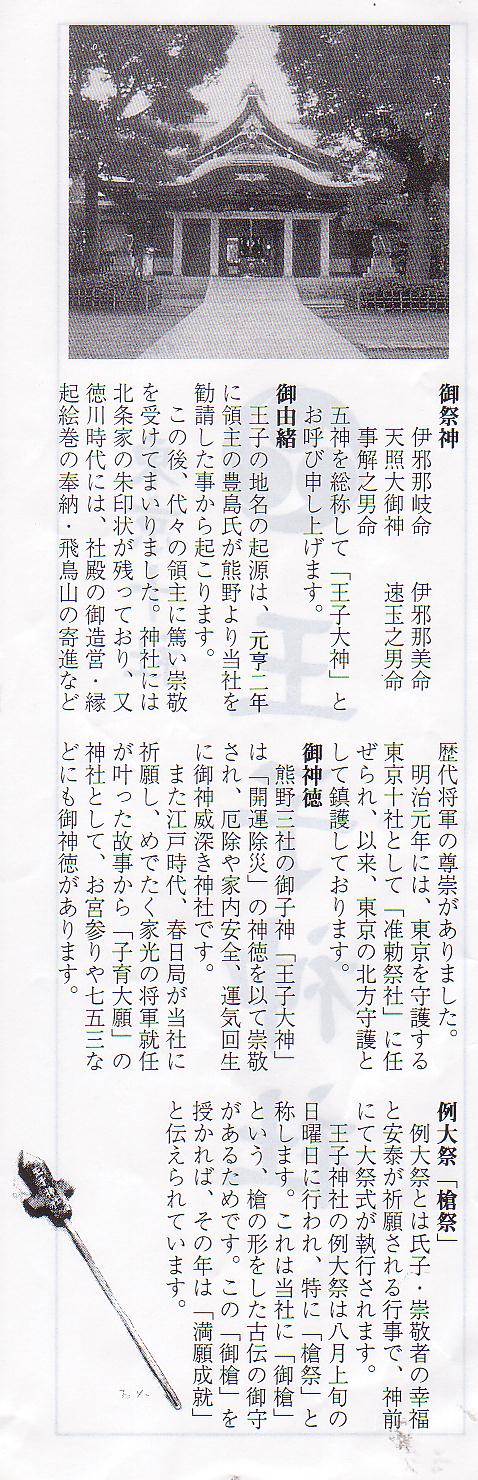 御祭神
伊邪那岐命　伊邪那美命
天照大御神　速玉之男命
事解之男命
五神を総称して「王子大神」と
お呼び申し上げます。
御由緒
王子の地名の起源は、元亨二年
に領主の豊島氏が熊野より当社を
勧請した事から起こります。
この後、代々の領主に篤い崇敬
を受けてまいりました。神社には
北条家の朱印状が残っており、又
徳川時代には、社殿の御造営・縁
起絵巻の奉納・飛鳥山の寄進など
歴代将軍の尊崇がありました。
明治元年には、東京を守護する
東京十社として「准勅祭社」に任
ぜられ、以来、東京の北方守護と
して鎮護しております。
御神徳
熊野三社の御子神「王子大神」
は「開運除災」の神徳を以て崇敬
され、厄除や家内安全、運気回生
に御神威深き神社です。
また江戸時代、春日局が当社に
祈願し、めでたく家光の将軍就任
が叶った故事から「子育大願」の
神社として、お宮参りや七五三な
どにも御神徳があります。
例大祭「槍祭」
例大祭とは氏子・崇敬者の幸福
と安泰が祈願される行事で、神前
にて大祭式が執行されます。
王子神社の例大祭は八月上旬の
日曜日に行われ、特に「槍祭」と
称します。これは当社に「御槍」
という、槍の形をした古伝の御守
があるためです。この「御槍」を
授かれば、その年は「満願成就」
と伝えられています。